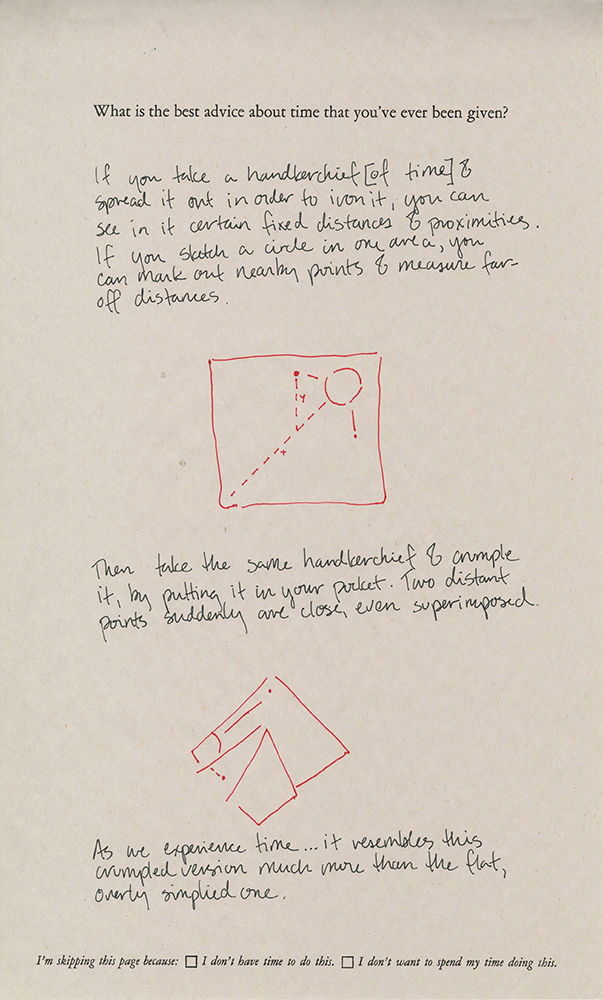 What is the best advice about time that you've ever been given?
If you take a handkerchief [of time] &
spread it out in order to iron it, you can
see in it certain fixed distances & proximities.
If you sketch a circle in one area, you
can mark out nearby points & measure far-
off distances.
Then take the same handkerchief & crumple
it, by putting it in your pocket. Two distant
points suddenly are close, even superimposed.
As we experience time... it resembles this
crumpled version much more than the flat,
overly simplied one.
I'm skipping this page because: ☐ I don't have time to do this. ☐ I don't want to spend my time doing this.